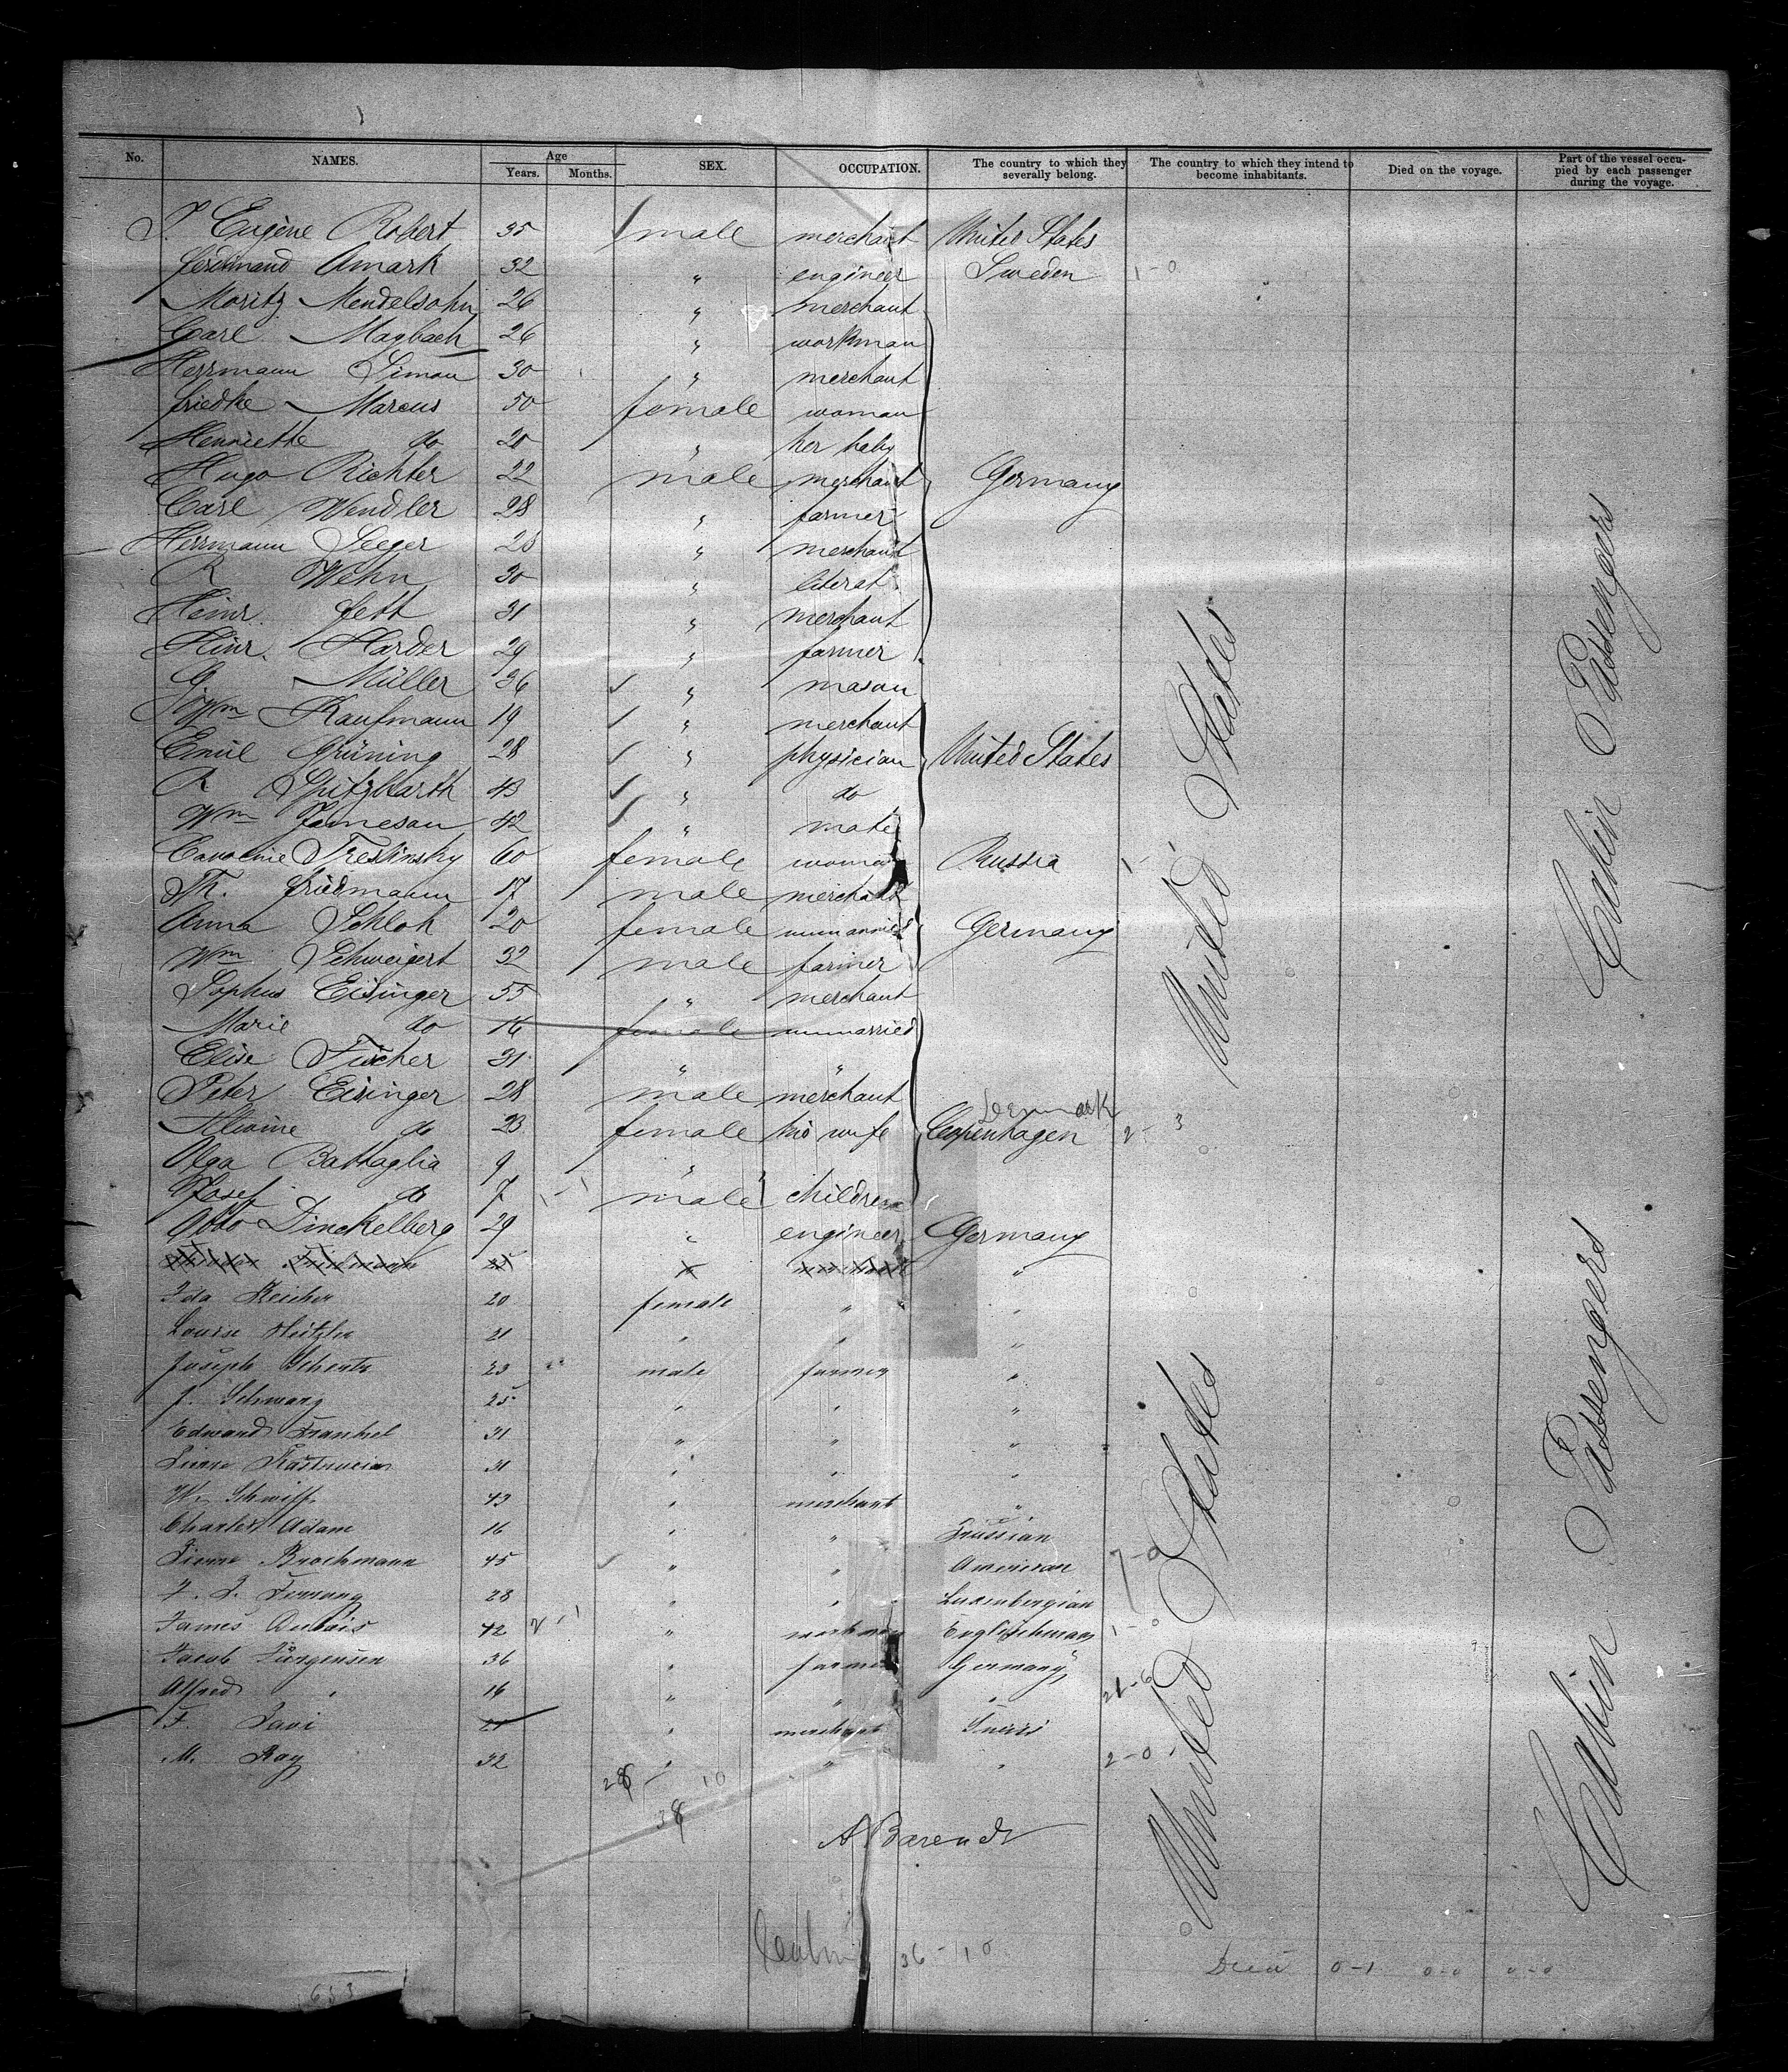 No. NAMES. Age Years. Months. SEX. OCCUPATION. The country to which they severally belong. The country to which they intend to become inhabitants. Died on the voyage. Part of the vessel occupied by each passenger during the voyage.
Eugene Robert 35 male merchant United States
Ferdinand Amark 32 " engineer Sweden 1-0
Moritz Mendelsohn 26 " merchant
Carl Magbach 26 " workman
Herrmann Simon 30 " merchant
Friedke Marcus 50 female woman
Henriette do 20 " her baby
Hugo Richter 22 male merchant Germany
Carl Wendler 28 " farmer
Herrmann Seeger 28 " merchant
R Wehn 30 " literat
Heinr. Fett 31 " merchant
Hinr. Harder 29 " farmer
G Müller 36 " mason
Kaufmann 19 " merchant
Emil Grüning 28 " physician United States
R Spitzbarth 43 " do
Wm Jameson 42 " mate
Caroline Treslinsky 60 female woman Russia
Th. Friedmann 17 male merchant
Anna Schloh 20 female unmarried Germany
Wm Schweigert 32 male farmer
Sophus Eisinger 55 " merchant
Marie do 16 female unmarried
Elise Fischer 31 " "
Peter Eisinger 28 male merchant
Denmark
Alwine do 23 female his wife Copenhagen
Olga Battaglia 9 "
Josef do 7 male children
Otto Dinckelberg 29 " engineer Germany
"
Ida 20 female " "
Louise 21 " " "
Joseph 23 male farmer "
J. Schwarz 25 " " "
Edward Frankel 31 " " "
Pierre 31 " " "
W. 43 " merchant "
Charles Adam 16 " " Prussian
Pierre Brochmann 45 " " American 7-0
28 " " Luxenbergian
James Dubois 42 " Englishman 1-0
Jacob Jürgensen 36 " farmer Germany
Alfred " 16 " " " 21-6
F. " merchant
M. Ray 32 " " " 2-0
28 10
38
A Barends
36-10
0-1 0-0 0-0
653
United States
United States
Cabin Passengers
Cabin Passengers